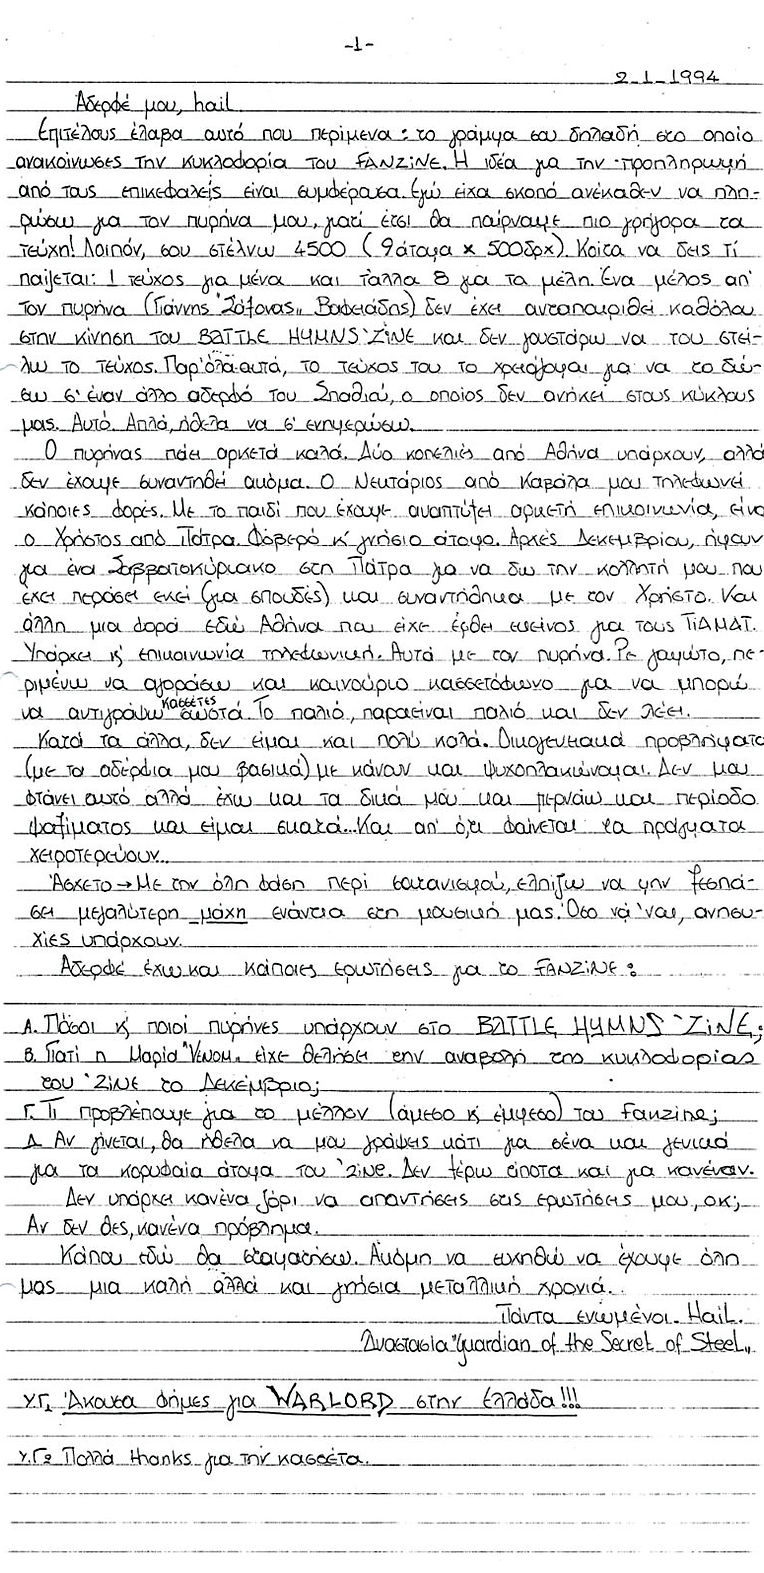 -1-
2-1-1994
Αδερφέ μου, hail
Επιτέλους έλαβα αυτό που περίμενα: το γράμμα σου δηλαδή στο οποίο
ανακοίνωσες την κυκλοφορία του FANZINE. Η ιδέα για την προπληρωμή
από τους επικεφαλείς είναι συμφέρουσα. Εγώ είχα σκοπό ανέκαθεν να πλη-
ρώσω για τον πυρήνα μου, γιατί έτσι θα παίρναμε πιο γρήγορα τα
τεύχη! Λοιπόν, σου στέλνω 4500 (9 άτομα x 500δρχ). Κοίτα να δεις τί
παίζεται: 1 τεύχος για μένα και τάλλα 8 για τα μέλη. Ένα μέλος απ'
τον πυρήνα (Γιάννης "Σάξονας" Βαφειάδης) δεν έχει ανταποκριθεί καθόλου
στην κίνηση του BATTLE HYMNS 'ZINE και δεν γουστάρω να του στεί-
λω το τεύχος. Παρ'όλα αυτά, το τεύχος του το χρειάζομαι για να το δώ-
σω σ'έναν άλλο αδερφό του Σπαθιού, ο οποίος δεν ανήκει στους κύκλους
μας. Αυτό. Απλά, ήθελα να σ' ενημερώσω.
Ο πυρήνας πάει αρκετά καλά. Δύο κοπελιές από Αθήνα υπάρχουν, αλλά
δεν έχουμε συναντηθεί ακόμα. Ο Νεκτάριος από Καβάλα μου τηλεφωνεί
κάποιες φορές. Με το παιδί που έχουμε αναπτύξει αρκετή επικοινωνία, είναι
ο Χρήστος από Πάτρα. Φοβερό κ' γνήσιο άτομο. Αρχές Δεκεμβρίου, ήμουν
για ένα Σαββατοκύριακο στη Πάτρα για να δω την κολλητή μου που
έχει περάσει εκεί (για σπουδές) και συναντήθηκα με τον Χρήστο. Και
άλλη μια φορά εδώ Αθήνα που είχε έρθει εκείνος για τους TIAMAT.
Υπάρχει κ' επικοινωνία τηλεφωνική. Αυτά με τον πυρήνα. Ρε γαμώτο, πε-
ριμένω να αγοράσω και καινούριο κασσετόφωνο για να μπορώ
να αντιγράφω κασέτες σωστά. Το παλιό, παραείναι παλιό και δεν λέει.
Κατά τα άλλα, δεν είμαι και πολύ καλά. Οικογενιακά προβλήματα
(με τα αδέρφια μου βασικά) με κάνουν και ψυχοπλακώνομαι. Δεν μου
φτάνει αυτό αλλά έχω και τα δικά μου και περνάω και περίοδο
ψαξίματος και είμαι σκατά... Και απ' ό,τι φαίνεται τα πράγματα
χειροτερεύουν...
Άσχετο → Με την όλη φάση περί σατανισμού, ελπίζω να μην ξεσπά-
σει μεγαλύτερη μάχη ενάντια στη μουσική μας. Όσο νά 'ναι, ανησυ-
χίες υπάρχουν.
Αδερφέ έχω και κάποιες ερωτήσεις για το FANZINE:
Α. Πόσοι κ' ποιοί πυρήνες υπάρχουν στο BATTLE HYMNS 'ZINE;
Β. Γιατί η Μαρία "Venom" είχε θελήσει την αναβολή της κυκλοφορίας
του 'ZINE το Δεκέμβριο;
Γ. Τι προβλέπουμε για το μέλλον (άμεσο κ' έμμεσο) του Fanzine;
Δ. Αν γίνεται, θα ήθελα να μου γράψεις κάτι για σένα και γενικά
για τα κορυφαία άτομα του 'zine. Δεν ξέρω τίποτα και για κανέναν.
Δεν υπάρχει κανένα ζόρι να απαντήσεις στις ερωτήσεις μου, οκ;
Αν δεν θες, κανένα πρόβλημα.
Κάπου εδώ θα σταματήσω. Ακόμη να ευχηθώ να έχουμε όλοι
μας μια καλή αλλά και γνήσια μεταλλική χρονιά.
Πάντα ενωμένοι. Hail.
Αναστασία "Guardian of the Secret of Steel"
Υ.Γ. Άκουσα φήμες για WARLORD στην Ελλάδα!!!
Υ.Γ2 Πολλά thanks για την κασσέτα.